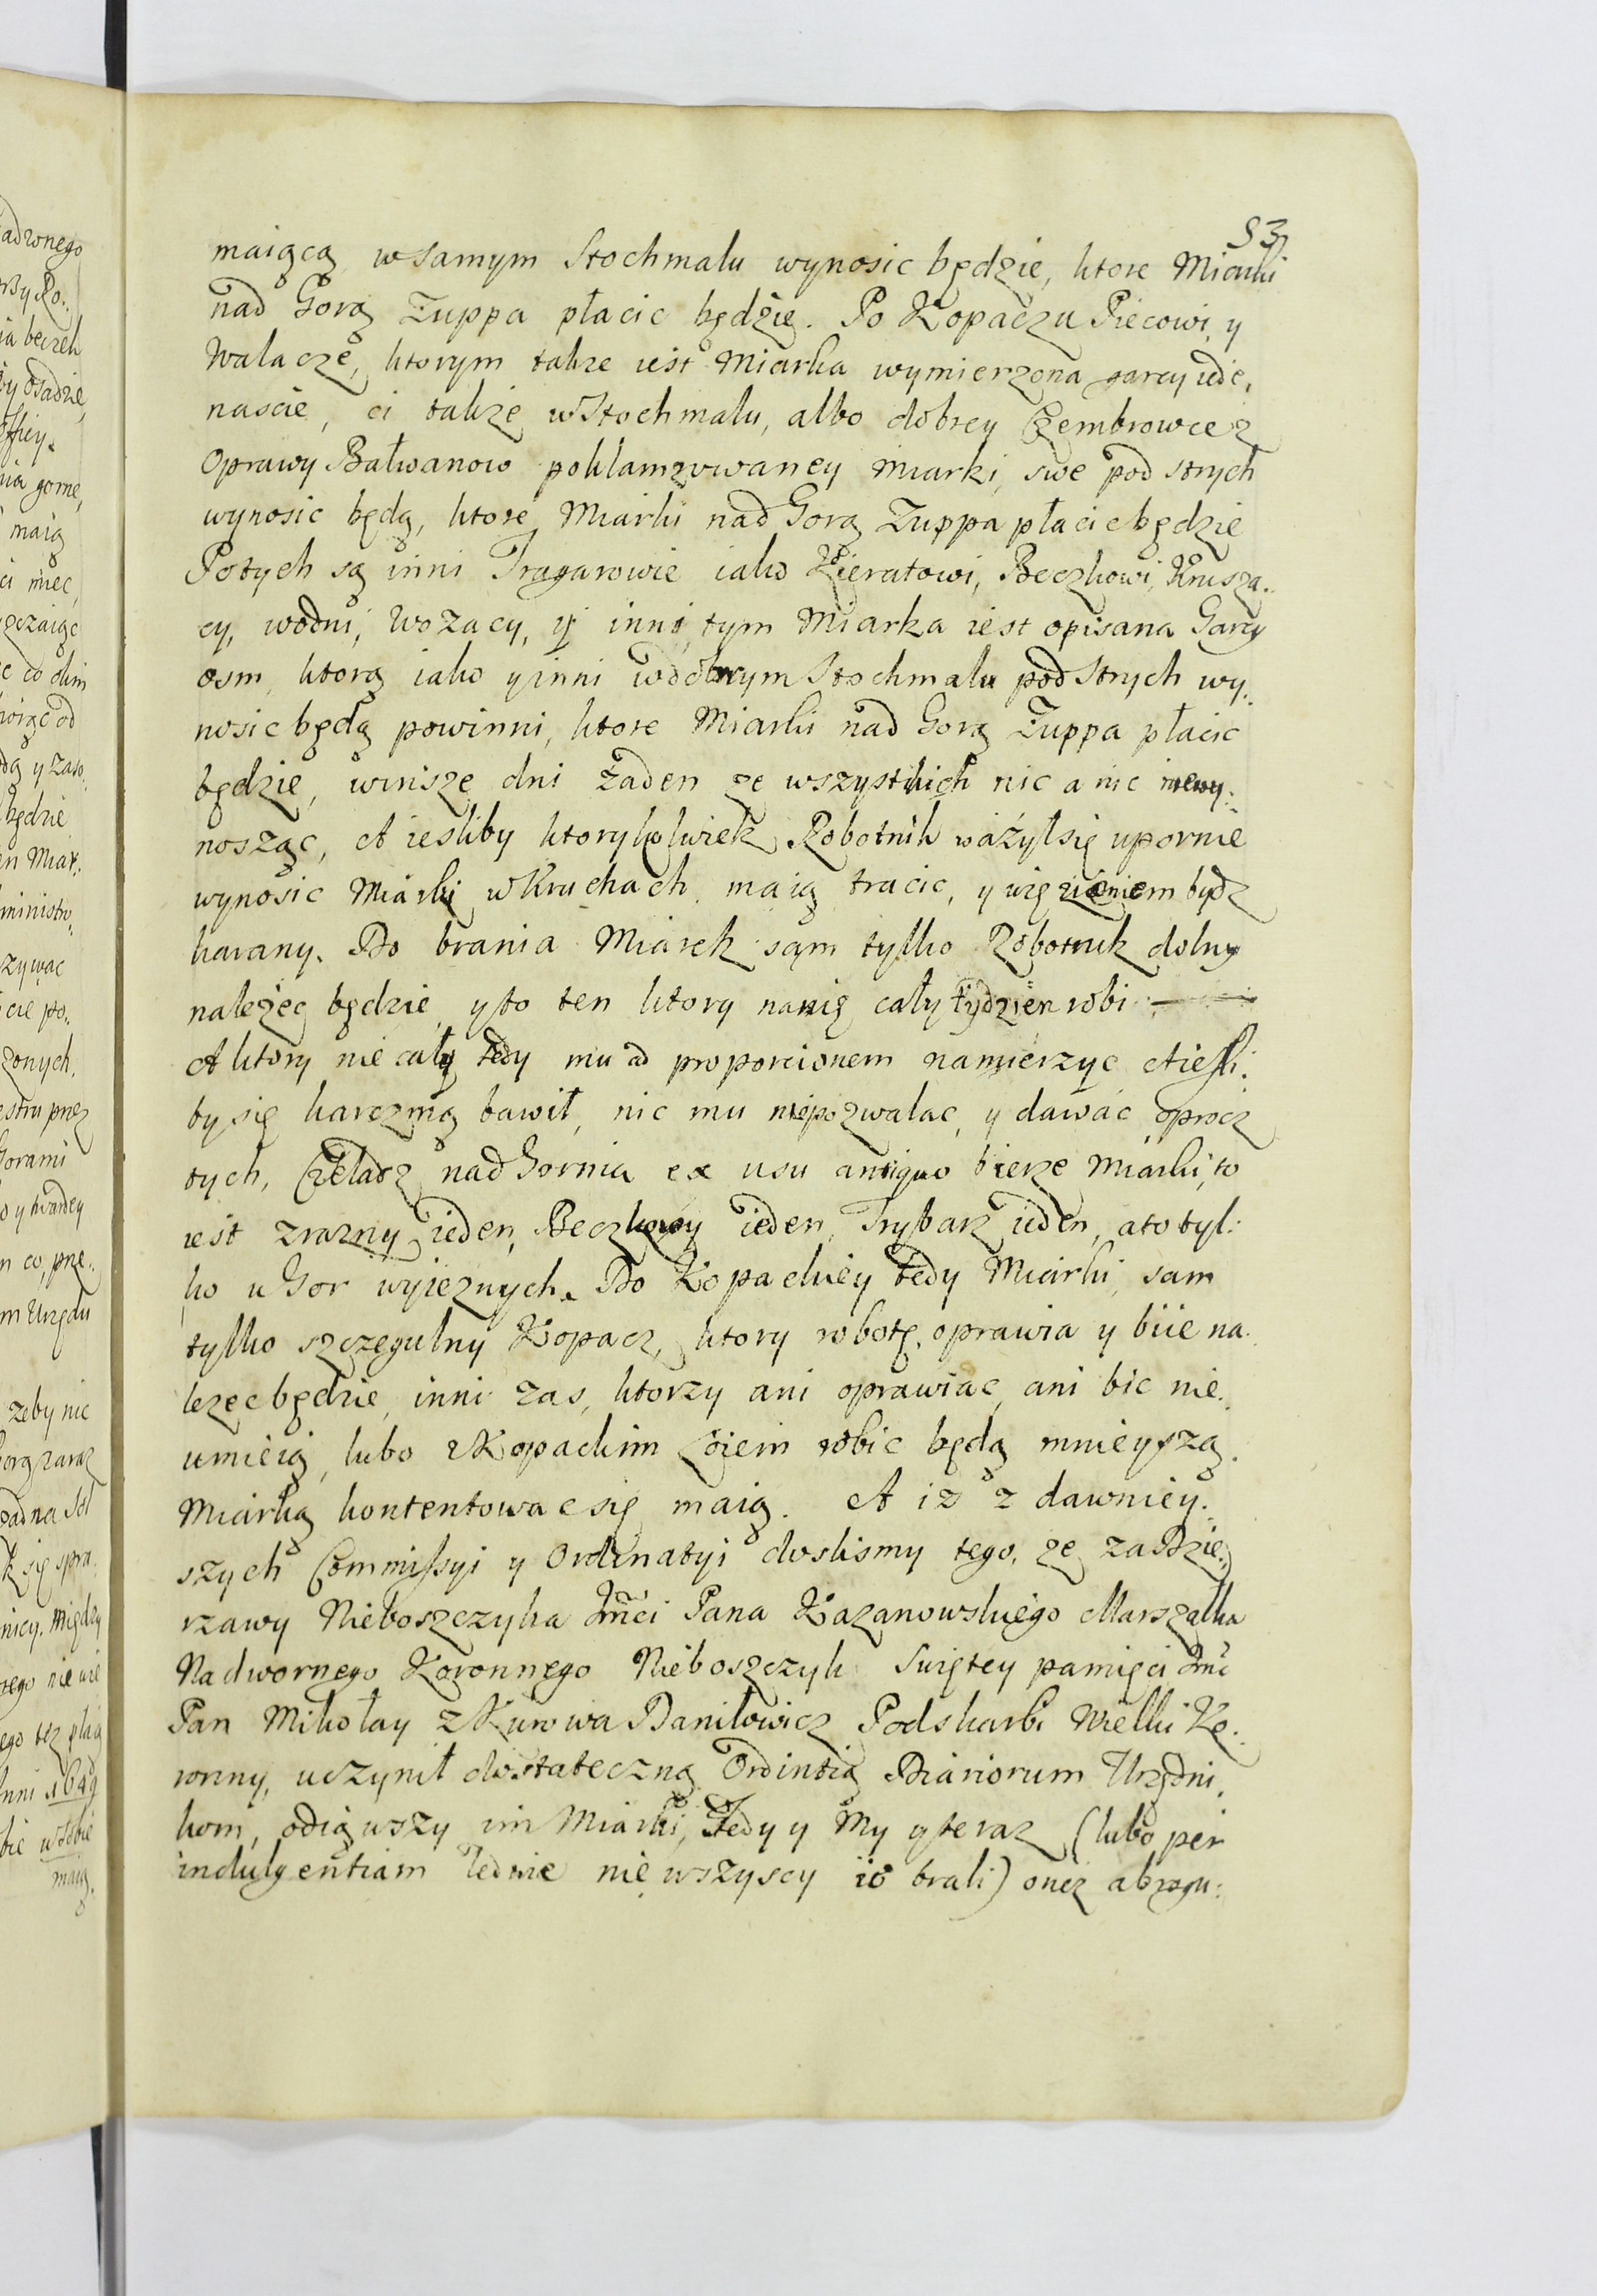 53
maiącą w samym Stochmalu wynosic będzie, ktore Miarki
nad Gorą Zuppa płacic będzie. Po Kopaczu Piecowi, y
Walacze, ktorym takze iest Miarka wymierzona garcy iede,
nascie, ci takze w Stochmalu, albo dobrey Czembrowce z
Oprawy Bałwanow poklamrowaney miarki, swe pod strych
wynosic będą, ktore Miarki nad Gorą Zuppa płacic będzie
Potych są inni Tragarowie iako Kieratowi, Beczkowi, Krusza.
cy, wodni, Wozacy, y inni, tym Miarka iest opisana Garcy
osm, ktorą iako y inni w dobrym Stochmalu pod Strych wy.
nosic będą powinni, ktore Miarki nad Gorą Zuppa płacic
będzie, w insze dni żaden ze wszystkich nic a nic niewy:
nosząc, A iesliby ktorykolwiek Robotnik ważył się upornie
wynosic Miarki w Kruchach, maią tracic, y więzieniem bydz
karany. Do brania Miarek sam tylko Robotnik dolny
nalezec będzie, y to ten ktory na nię cały tydzien robi
A ktory nie cały tedy mu ad proporcionem namierzyc A iesli:
by się karczmą bawił, nic mu niepozwalac, y dawac oprocz
tych, Czeladz nad Gornia ex usu antiquo bierze Miarki, to
iest Zrazny ieden, Beczkowy ieden, Trybarz ieden, a to tyl:
ko u Gor wyieznych. Do Kopackiey tedy Miarki, sam
tylko szczegulny Kopacz, ktory robotę, oprawia y biie na.
lezec będzie, inni zas, ktorzy ani oprawiac, ani bic nie.
umieią, lubo z Kopackim Coiem robic będą mnieyszą.
Miarką kontentowac się maią. A iz z dawniey:
szych Commissyi y Ordinatyi doslismy tego, ze za Dzie.
rzawy Nieboszczyka Jmci Pana Kazanowskiego Marszałka
Nadwornego Koronnego Nieboszczyk Swiętey pamięci Jmc
Pan Mikołay z Kurowa Daniłowicz Podskarbi Wielki Ko.
ronny, uczynił dostateczną Ordintią Diariorum Urzędni,
kom, odiąwszy im Miarki, Tedy y My y teraz (lubo per
indulgentiam ledwie nie wszyscy io brali) onez abrogu: